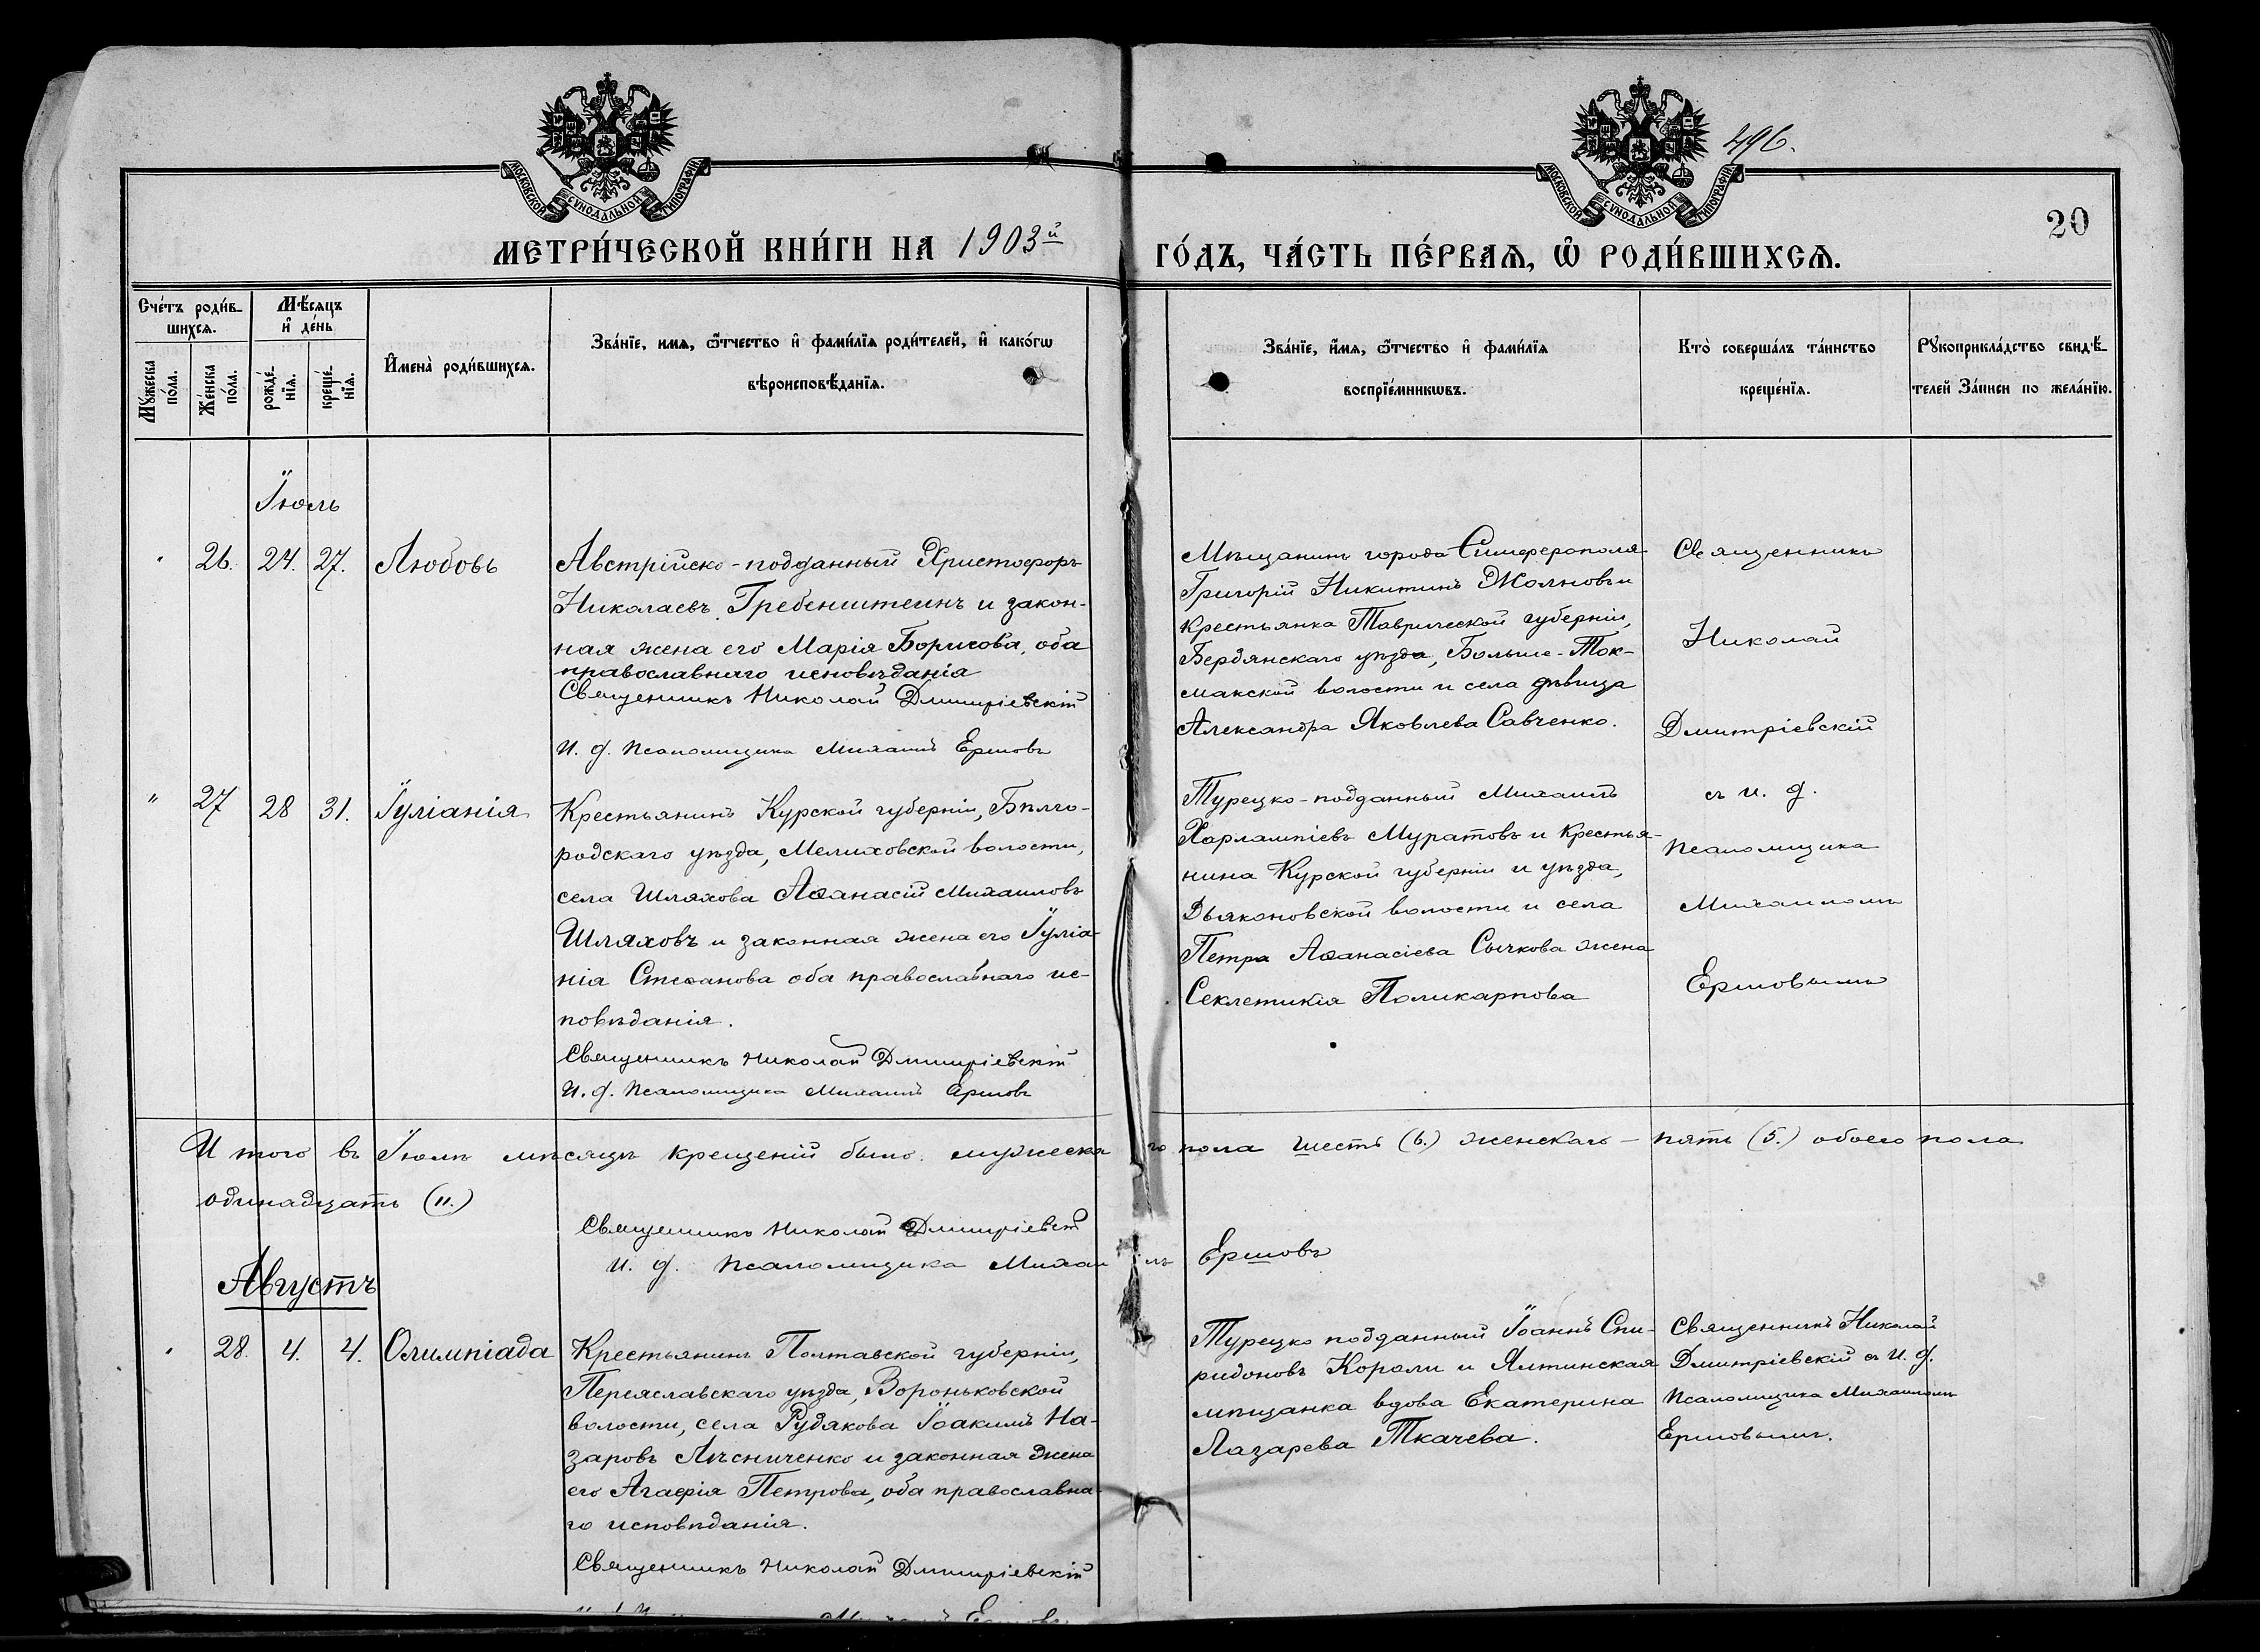 МОСКОВСКОЙ СУНОДАЛЬНОЙ ТИПОГРАФІИ
МОСКОВСКОЙ СУНОДАЛЬНОЙ ТИПОГРАФІИ
496.
20
МЕТРИ́ЧЕСКОЙ КНИ́ГИ НА 1903й
ГО́ДЪ, ЧА́СТЬ ПЕ́РВАѦ, Ѡ҆ РОДИ́ВШИХСѦ.
Сче́тъ роди́в-
шихсѧ.
Мꙋ́жеска
по́ла.
Же́нска
по́ла.
Мѣ́сѧцъ
и҆ де́нь
рожде́-
нїѧ.
креще́-
нїѧ.
И҆мена̀ роди́вшихсѧ.
Зва́нїе, имѧ, ѻ҆́тчество и҆ фами́лїѧ роди́телей, и҆ како́гѡ
вѣроисповѣ́данїѧ.
Зва́нїе, и҆́мѧ, ѻ҆́тчество и҆ фами́лїѧ
воспрїе́мникѡвъ.
Кто̀ соверша́лъ та́инство
креще́нїѧ.
Рꙋкоприкла́дство свидѣ́-
телей За́писи по жела́нїю.
Іюль
26. 24. 27. Любовь
Австрійско-подданный Христофоръ
Николаевъ Гребенштеинъ и закон-
ная жена его Марія Борисова, оба
православнаго исповѣданія
Священникъ Николай Дмитріевскій
И. д. Псаломщика Михаилъ Ершовъ
Мѣщанинъ города Симферополя
Григорій Никитинъ Жолновъ и
крестьянка Таврической губерніи,
Бердянскаго уѣзда, Больше-Ток-
макской волости и села дѣвица
Александра Яковлева Савченко.
Священникъ
Николай
Дмитріевскій
" 27 28 31. Іуліанія
Крестьянинъ Курской губерніи, Бѣлго-
родскаго уѣзда, Мелиховской волости,
села Шляхова Аѳанасій Михаиловъ
Шляховъ и законная жена его Іуліа-
нія Стефанова оба православнаго ис-
повѣданія.
Священникъ Николай Дмитріевскій
И. д. Псаломщика Михаилъ Ершовъ
Турецко-подданный Михаилъ
Харлампіевъ Муратовъ и крестья-
нина Курской губерніи и уѣзда,
Дьяконовской волости и села
Петра Аѳанасіева Сычкова жена
Секлетикія Поликарпова
съ и. д.
псаломщика
Михаиломъ
Ершовымъ
И того въ Іюлѣ мѣсяцѣ крещеній было: мужеска го пола шесть (6.) женскаго - пять (5.) обоего пола
одинадцать (11.)
Священникъ Николай Дмитріевскій
И. д. Псаломщика Михаилъ Ершовъ
Августъ
28. 4. 4. Олимпіада
Крестьянинъ Полтавской губерніи,
Переяславскаго уѣзда, Вороньковской
волости, села Рудякова Іоакимъ На-
заровъ Лѣсниченко и законная жена
его Агафія Петрова, оба православна-
го исповѣданія.
Священникъ Николай Дмитріевскій
Турецко подданный Іоаннъ Спи-
ридоновъ Короли и Ялтинская
мѣщанка вдова Екатерина
Лазарева Ткачева.
Священникъ Николай
Дмитріевскій съ И. д.
Псаломщика Михаиломъ
Ершовымъ.